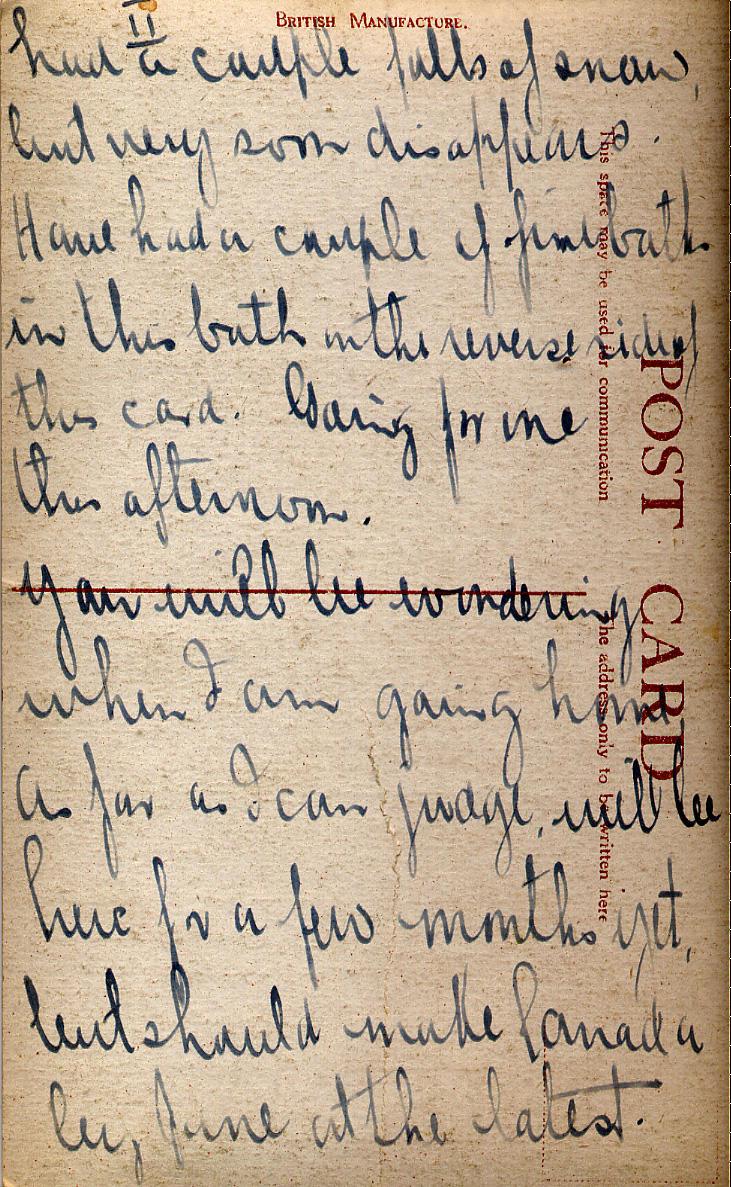 II
BRITISH MANUFACTURE.
had a couple falls of snow,
but very soon disappears.
Have had a couple of fine baths
in this bath on the reverse side of
this card. Going for one
this afternoon.
You will be wondering
when I am going home
As far as I can judge, will be
here for a few months yet,
but should make Canada
by June at the latest.
POST CARD
This space may be used for communication
The address only to be written here